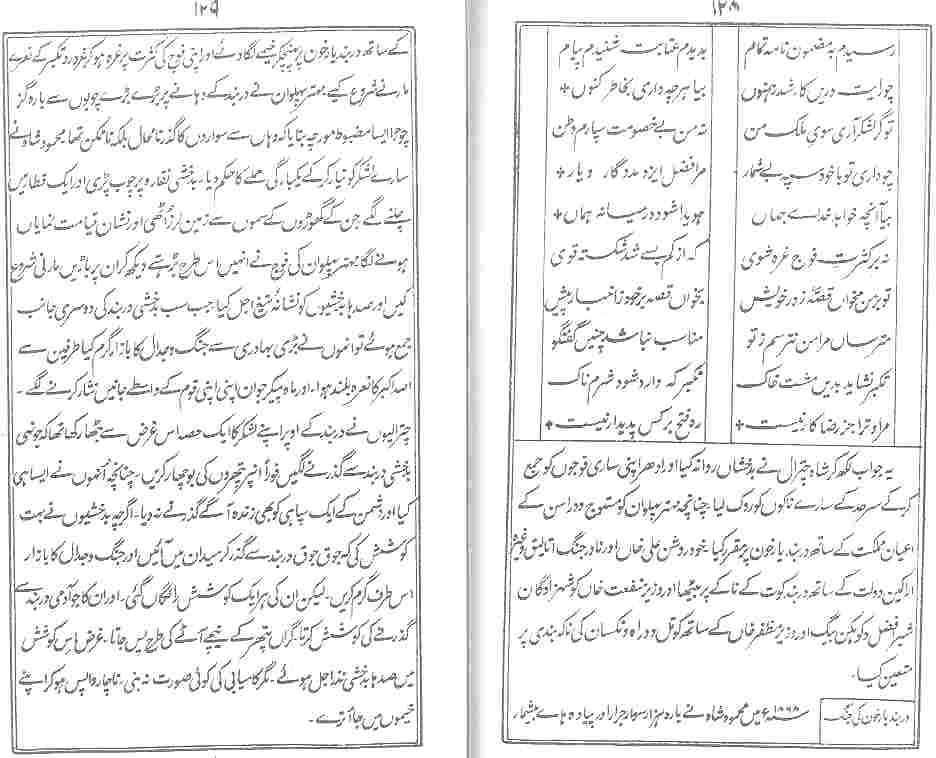 ۱۲۸
رسیدم بہ مضمون نامہ تمام بدیدم عتابت شنیدم پیام
چو رایت دریں کار شد رہنموں بیا ہر چہ داری بخاطر کنوں
تو گر لشکر آری سوی ملک من نہ من بے خصومت سپارم وطن
چو داری تو با خود سپہ بے شمار مرا فضل ایزد مددگار و یار
بیا آنچہ خواہد خداے جہاں ہویدا شود در میانہ ہماں
نہ بر کثرت فوج غرہ شوی کہ از کم بسے شد شکستہ قوی
تو بر من مخواں قصۂ زور خویش بخواں قصہ بر خود ز اخبار پیش
مترساں مرا من نترسم ز تو مناسب نباشد چنیں گفتگو
تکبر نشاید بدیں مشت خاک تکبر کہ وارد شود شرم ناک
مرا و ترا جز رضا کار نیست رہ فتح بر کس پدیدار نیست
یہ جواب لکھ کر شاہ چترال نے بدخشاں روانہ کیا اور ادھر اپنی ساری فوجوں کو جمع
کر کے سرحد کے سارے ناکوں کو روک لیا۔ چنانچہ مہتر پہلوان کو مستوج و وراسن کے
اعیان مملکت کے ساتھ دربند یارخون پر مقرر کیا۔ خود روشن علی خاں اور نادر جنگ اتالیق وغیرہ
اراکین دولت کے ساتھ دربند کوت کے ناکے پر بیٹھا اور وزیر منفعت خاں کو شہزادگان
شیر افضل و کوہکن بیگ اور وزیر مظفر خاں کے ساتھ کوتل دوراہ و نکسان کی ناکہ بندی پر
متعین کیا۔
دربند یارخون کی جنگ
۱۸۶۸ء میں محمود شاہ نے بارہ ہزار سوار جرار اور پیادہ ہاے بیشمار
۱۲۹
کے ساتھ دربند یارخون پر پہنچکر خیمے لگا دئے اور اپنی فوج کی کثرت پر غرہ ہو کر غرور و تکبر کے نعرے
مارنے شروع کیے۔ مہتر پہلوان نے دربند کے دہانے پر بڑے بڑے چوبوں سے بارہ گز
چوڑا ایسا مضبوط مورچہ بنایا کہ وہاں سے سواروں کا گذرنا محال بلکہ ناممکن تھا۔ محمود شاہ نے
سارے لشکر کو تیار کر کے یکبارگی حملے کا حکم دیا۔ بدخشی نقارہ پر چوب پڑی اور ایک قطار میں
چلنے لگے جن کے گھوڑوں کے سموں سے زمین لرز اُٹھی اور نشان قیامت نمایاں
ہونے لگا۔ مہتر پہلوان کی فوج نے انہیں اس طرح بڑھتے دیکھ کر ان پر باڑیں مارنی شروع
کیں اور صدہا بدخشیوں کو نشانۂ تیغ اجل کیا۔ جب سب بدخشی دربند کی دوسری جانب
جمع ہوئے تو انہوں نے بڑی بہادری سے جنگ و جدال کا بازار گرم کیا طرفین سے
اللہ اکبر کا نعرہ بلند ہوا۔ اور ماہ پیکر جوان اپنی اپنی قوم کے واسطے جانیں نثار کرنے لگے۔
چترالیوں نے دربند کے اوپر اپنے لشکر کا ایک حصہ اس غرض سے بٹھا رکھا تھا کہ جونہی
بدخشی دربند سے گذرنے لگیں فوراً اُنپر پتھروں کی بوچھار کریں۔ چنانچہ اُنھوں نے ایسا ہی
کیا اور دشمن کے ایک سپاہی کو بھی زندہ آگے گذرنے نہ دیا۔ اگرچہ بدخشیوں نے بہت
کوشش کی کہ جوق جوق دربند سے گذر کر میدان میں آئیں اور جنگ و جدال کا بازار
اس طرف گرم کریں۔ لیکن ان کی ہر ایک کوشش رائگاں گئی۔ اور ان کا جو آدمی دربند سے
گذرنے کی کوشش کرتا۔ گراں پتھر کے نیچے آٹے کی طرح پس جاتا۔ غرض اس کوشش
میں صدہا بدخشی نذر اجل ہوئے۔ مگر کامیابی کی کوئی صورت نہ بنی۔ ناچار واپس ہو کر اپنے
خیموں میں جا اُترے۔